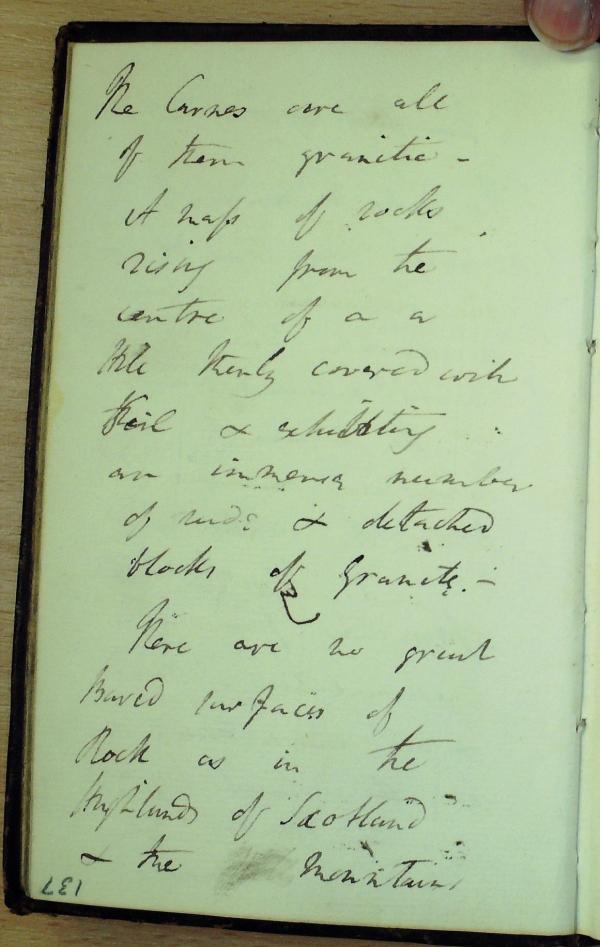 The Carnes are all
of them granitic -
A mass of rocks
rising from the
centre of a a
Hill thinly covered with
Soil & exhibiting
an immense number
of rude & detached
blocks of Granite. -
There are no great
Bared surfaces of
Rock as in the
Highlands of Scotland
& the Mountains
137